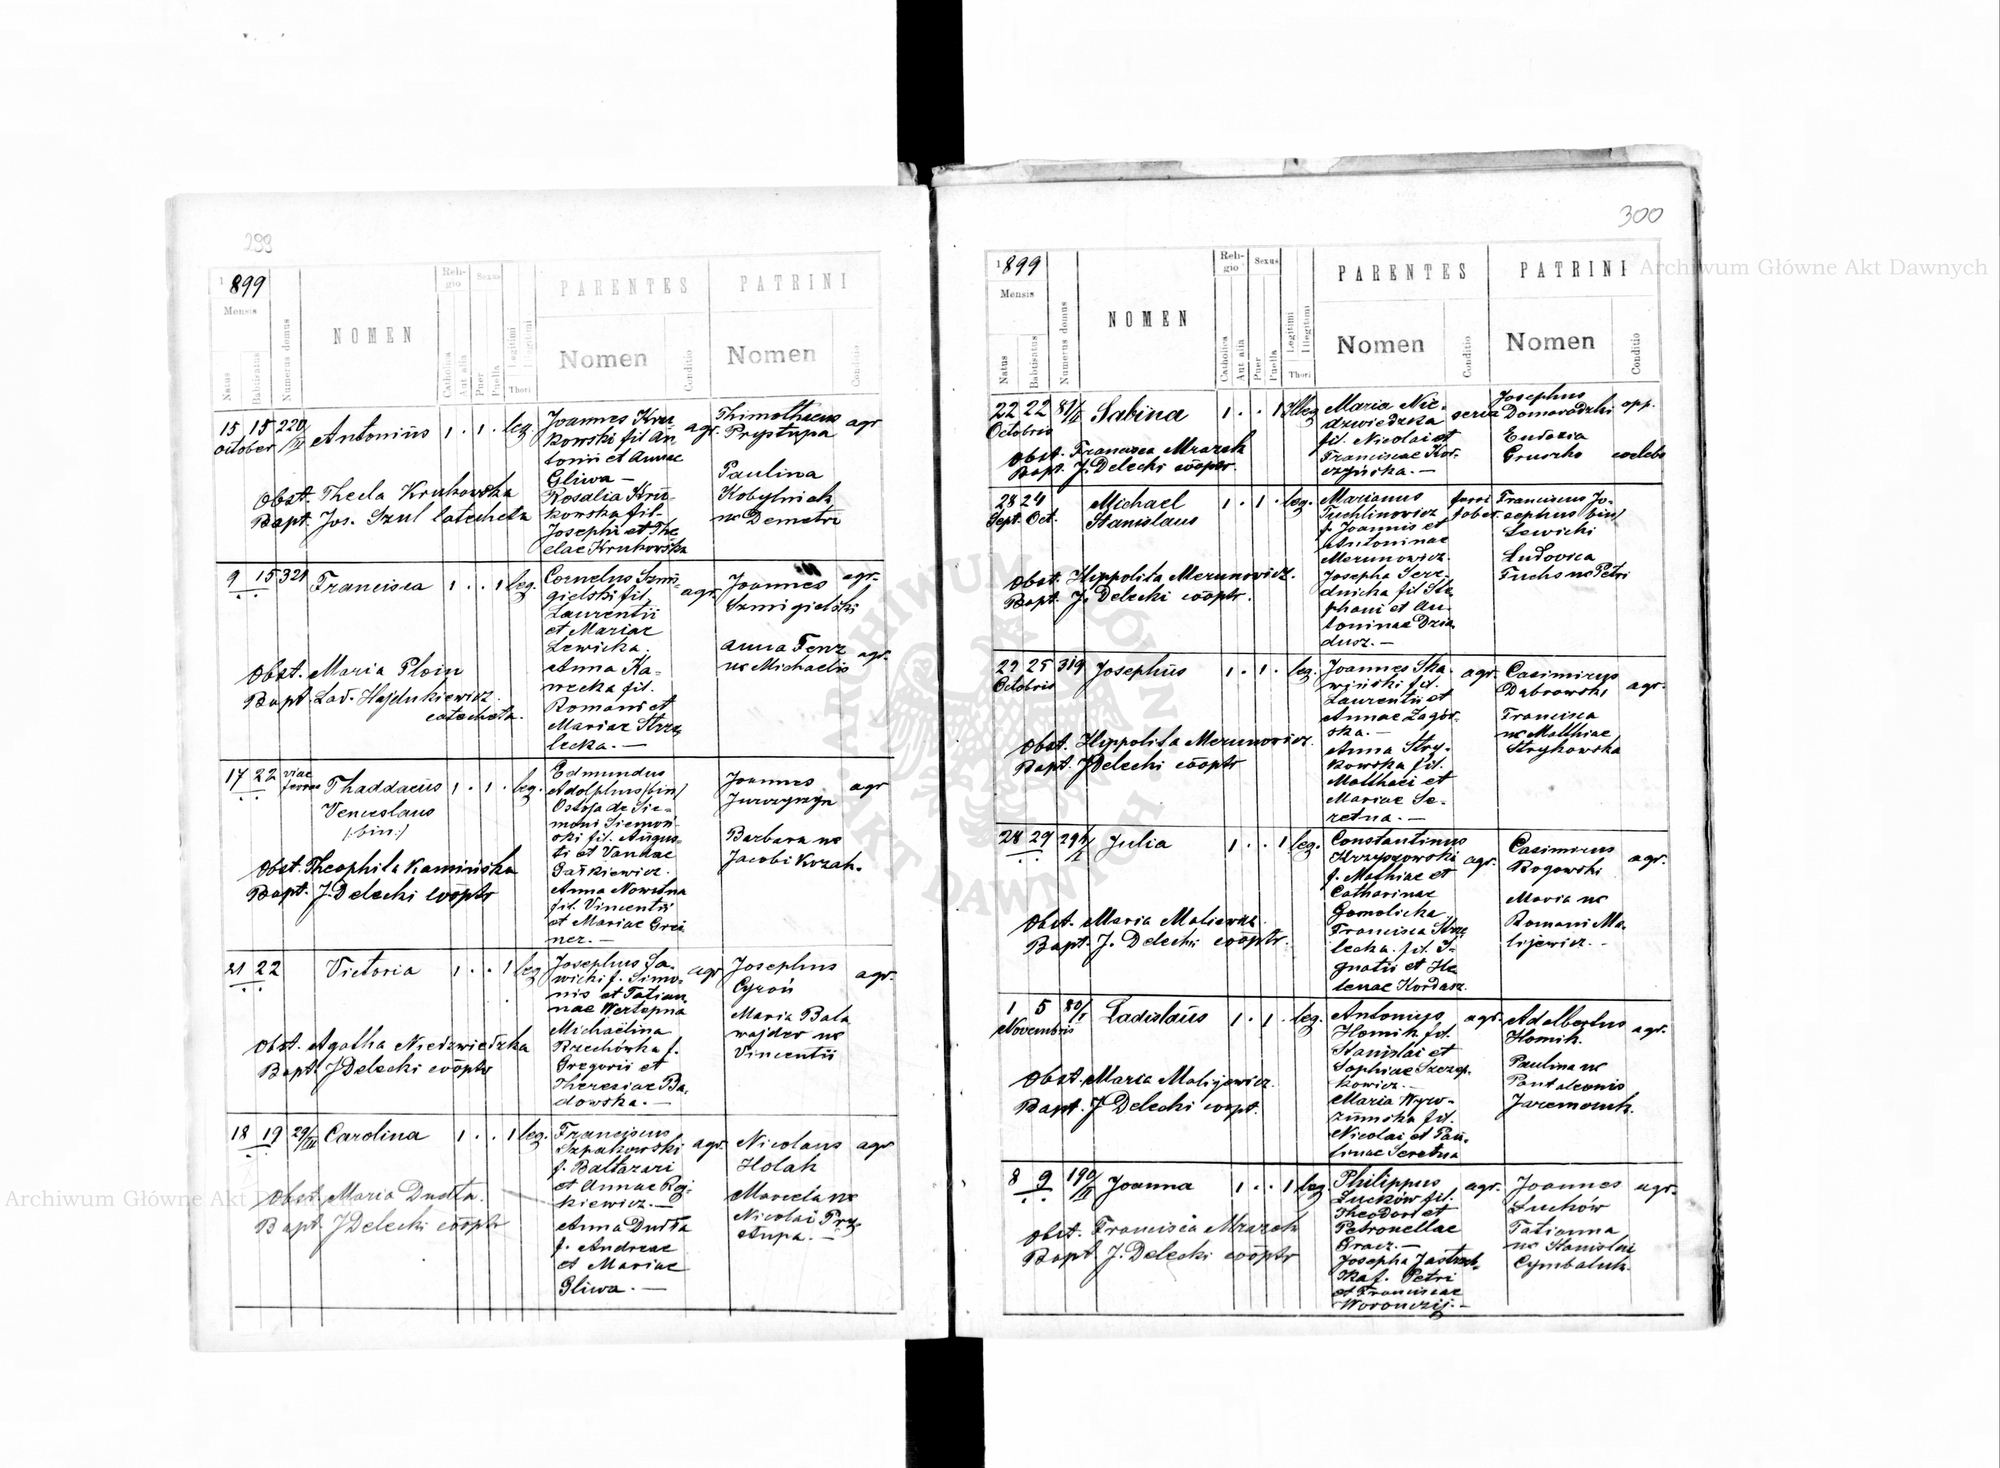 299
1899
Mensis
Natus
Babtisatus
Numerus domus
NOMEN
Reli-
gio
Catholica
Aut alia
Sexus
Puer
Puella
Legitimi
Illegitimi
Thori
PARENTES
Nomen
Conditio
PATRINI
Nomen
Conditio
15 15 220/IV Antonius 1 . 1 . leg.
October
Obst. Thecla Krukowska
Bapt. Jos. Szul catecheta
Joannes Kru
kowski fil An
tonii et Annae
Gliwa —
Rosalia Kru-
kowska fil.
Josephi et The
clae Krukowska
agr.
Thimothaeus
Prystupa
agr
Paulina
Kobylniak
ux Demetri
9 15 321 Francisca 1 . . 1 leg.
Obst. Maria Ploin
Bapt. Lad. Hajdukiewicz
catecheta.
Cornelius Szmi
gielski fil.
Laurentii
et Mariae
Lewicka.
Anna Ka-
wecka fil.
Romani et
Mariae Strze
lecka. —
agr.
Joannes
Szmigielski
agr.
Anna Fenz
ux Michaelis
agr.
17 22 viae ferreae Thaddaeus 1 . 1 . leg.
Venceslaus
/:bin:/
Obst. Theophila Kamińska
Bapt. J Delecki cooptr
Edmundus
Adolphus /bin/
Ostoja de Sie-
moni Siemoń-
ski fil. Augus-
ti et Vandae
Anna Nowidna
fil. Vincentii
et Mariae Grei
ner. —
Joannes
Jurczyszyn
agr
Barbara ux
Jacobi Kozak.
21 22 Victoria 1 . . 1 leg
Obst. Agatha Niedzwiedzka
Bapt. J Delecki cooptr
Josephus Sa-
wicki f. Simo-
nis et Tatian
nae Wertopna
Michaelina
Brzechówka f.
Gregorii et
Theresiae Ba-
dowska. —
agr
Josephus
Cyroń
agr.
Maria Bala
wajder ux
Vincentii
18 19 29/III Carolina 1 . . 1 leg.
Obst. Maria Dudta.
Bapt. J Delecki cooptr
Franciscus
Szpakowski
f. Baltazari
et Annae Raj-
kiewicz. —
Anna Dudta
f. Andreae
et Mariae
Gliwa. —
agr.
Nicolaus
Holak
agr
Marcela ux
Nicolai Prz
stupa. —
300
1899
Mensis
Natus
Babtisatus
Numerus domus
NOMEN
Reli-
gio
Catholica
Aut alia
Sexus
Puer
Puella
Legitimi
Illegitimi
Thori
PARENTES
Nomen
Conditio
PATRINI
Nomen
Conditio
22 22 81/II Sabina 1 . . 1 Illeg
Octobris
Obst. Francisca Mrazek
Bapt. J. Delecki cooptr.
Maria Nie-
dzwiedzka
fil. Nicolai et
Franciscae Kor-
czyńska. —
Josephus
Domaradzki
opp.
Eudoxia
Gruszko
coelebs
28 24 Michael 1 . 1 . leg.
Sept. Oct. Stanislaus
Obst. Hippolita Merunowicz.
Bapt. J. Delecki cooptr.
Marianus
Tuchlinowicz
f. Joannis et
Antoninae
Merunowicz.
Josepha Sere-
dnicka fil Ste
phani et An-
toninae Dzia
dusz. —
Franciscus Jo-
sephus /bin/
Lewicki
Ludovica
Fuchs ux Petri
22 25 319 Josephus 1 . 1 . leg.
Octobris
Obst. Hippolita Merunowicz.
Bapt. J Delecki cooptr
Joannes Ska-
wiński fil.
Laurentii et
Annae Zagór-
ska. —
Anna Stry-
kowska fil.
Matthaei et
Mariae Se-
retna. —
agr.
Casimirus
Dąbrowski
agr.
Francisca
ux Matthiae
Strykowska
28 29 Julia 1 . . 1 leg.
Obst. Maria Maliewicz
Bapt. J. Delecki cooptr.
Constantinus
Krzyszowski
f. Mathiae et
Catharinae
Gomolicka
Francisca Strze
lecka. fil. I-
gnatii et He
lenae Kordasz
agr.
Casimirus
Rogowski
agr.
Maria ux
Romani Ma-
lijewicz. —
1 5 80/I Ladislaus 1 . 1 . leg.
Novembris
Obst. Maria Malijewicz.
Bapt. J Delecki coopt.
Antonius
Homik fil.
Stanislai et
Sophiae Szczep-
kowicz. —
Maria Wyro-
zumska fil.
Nicolai et Pau-
linae Seretna
agr.
Adalbertus
Homik.
agr.
Paulina ux
Pantaleonis
Jaremczuk.
8 9 190/II Joanna 1 . . 1 leg
Obst. Francisca Mrazek
Bapt. J. Delecki cooptr
Philippus
Luckow fil.
Theodori et
Petronellae
Gracz. —
Josepha Jastrzeb-
ska f. Petri
et Franciscae
Woronczij. —
agr.
Joannes
Luchów
agr.
Tatianna
ux Stanislai
Cymbaluk.
Archiwum Główne Akt Dawnych
Archiwum Główne Akt
ARCHIWUM GŁÓWNE AKT DAWNYCH